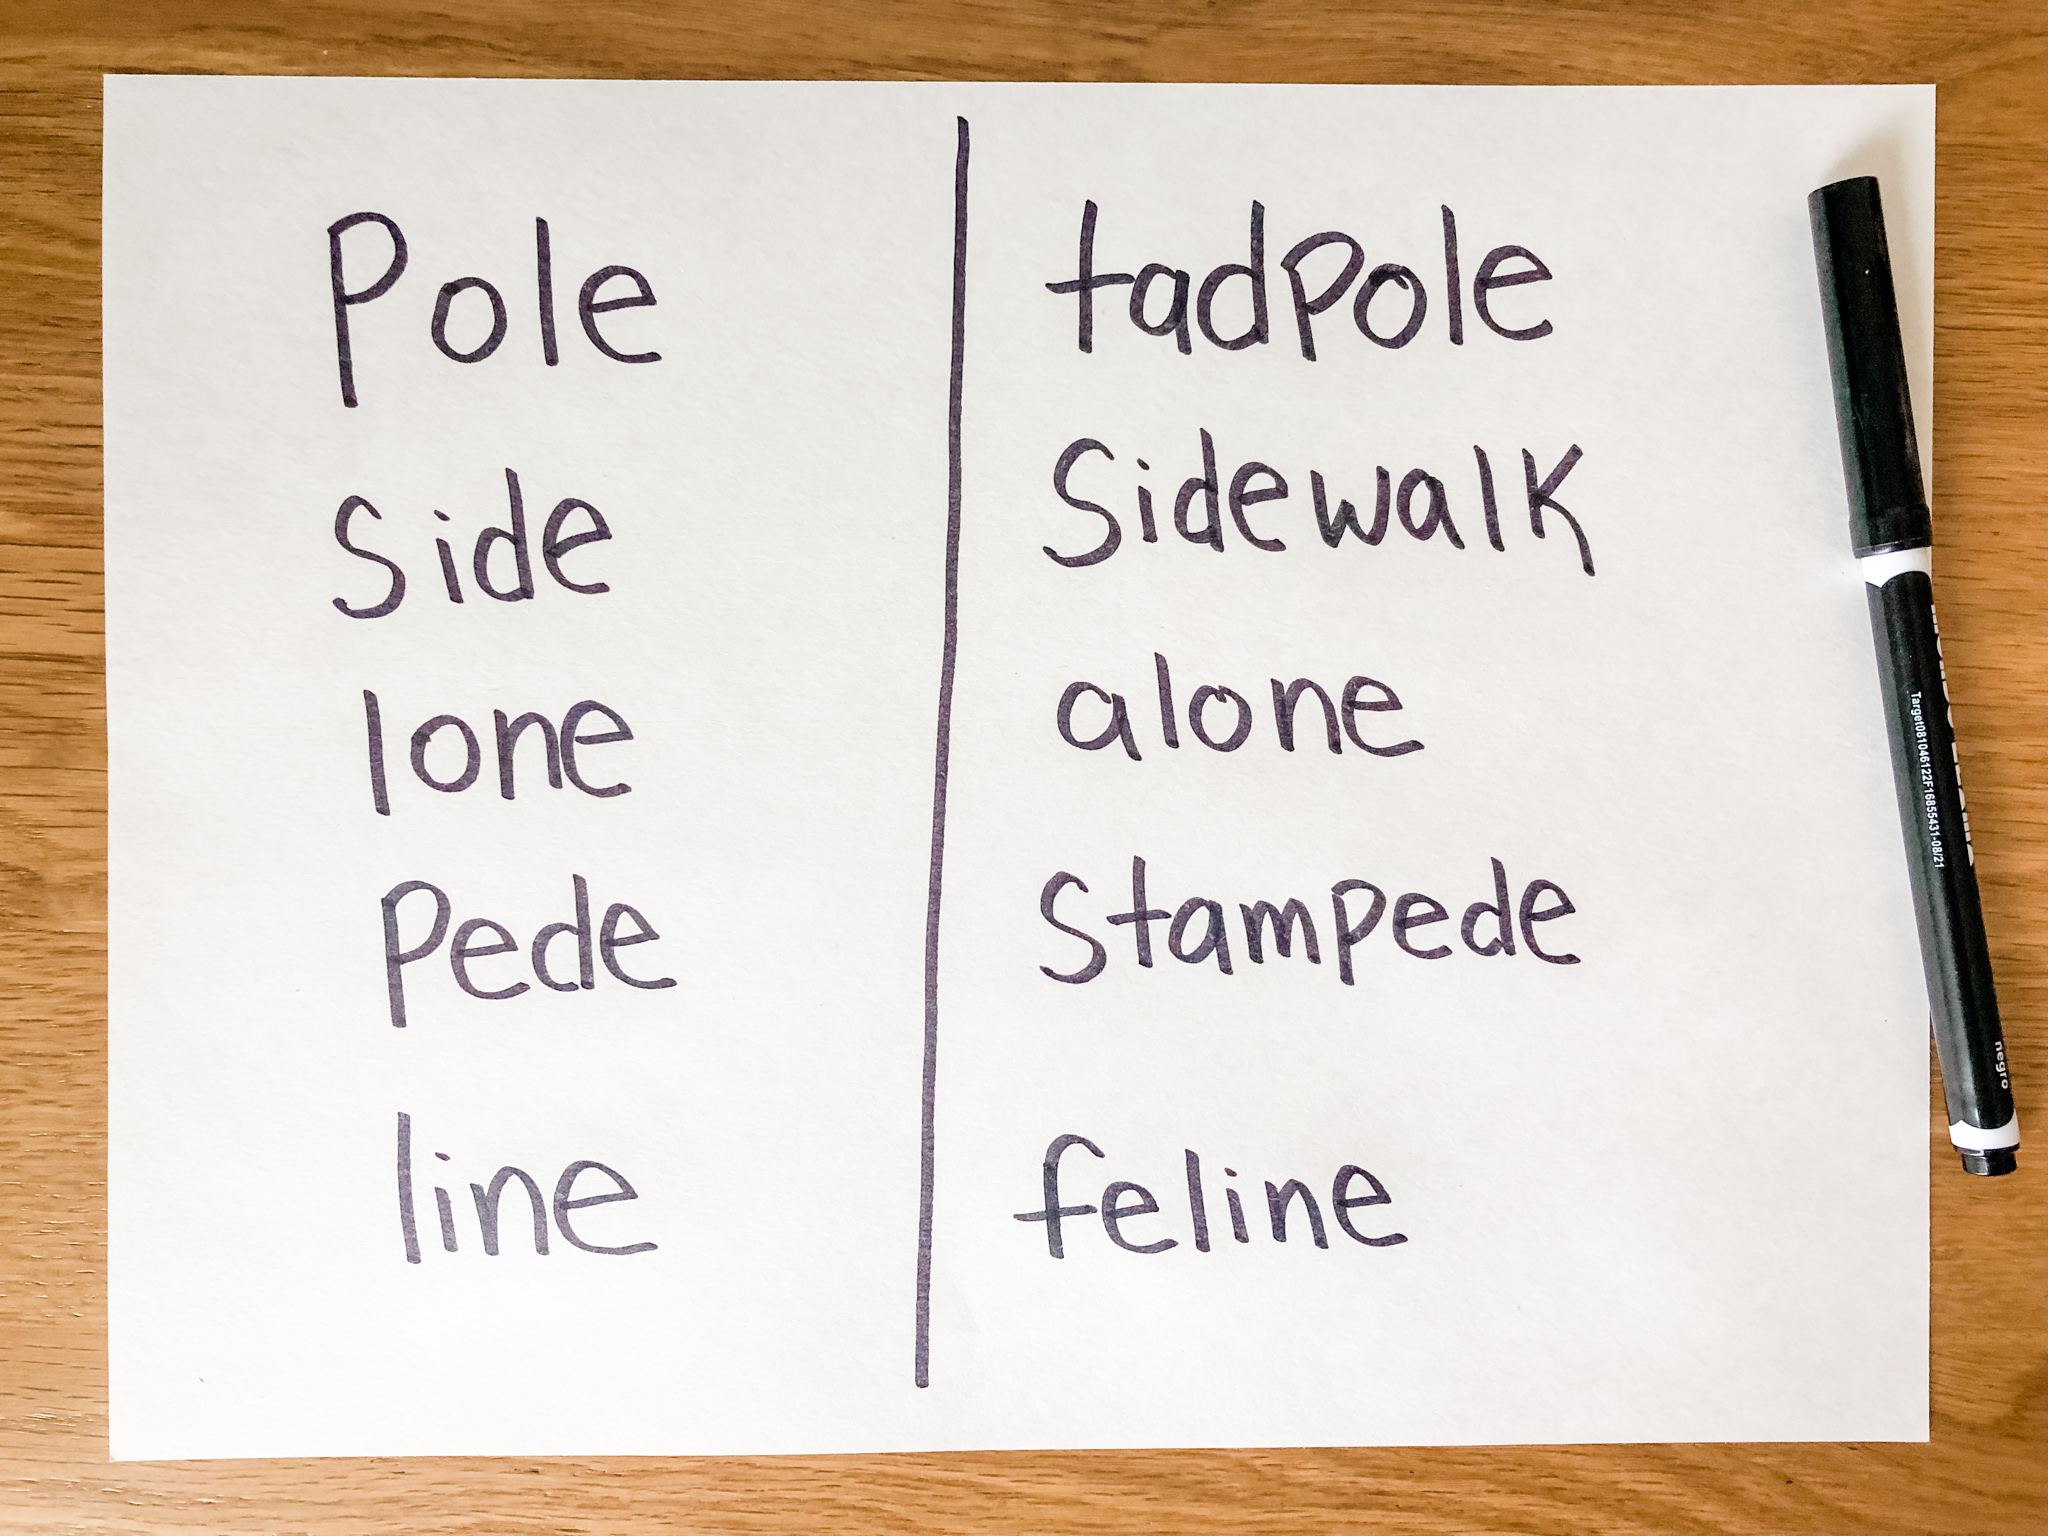 Pole
Side
lone
Pede
line
tadpole
Sidewalk
alone
Stampede
feline
Target081046122F1685431-08/21
negro